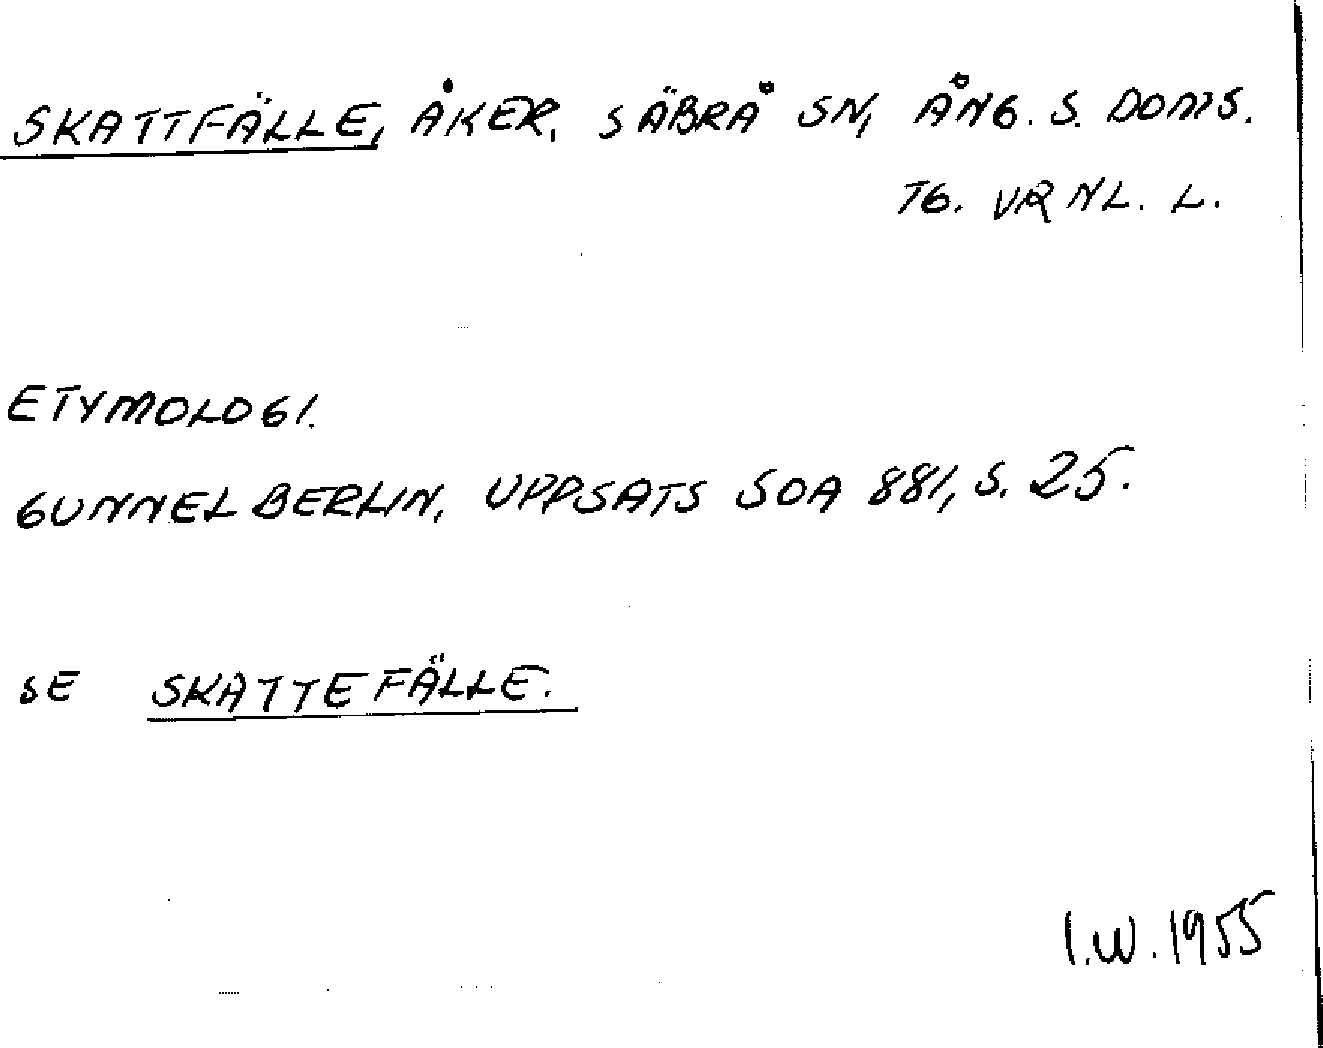 SKATTFÄLLE, ÅKER, SÄBRÅ SN, ÅNG. S. DOMS.
TG. VRNL. L.
ETYMOLOGI.
GUNNEL BERLIN, UPPSATS SOA 881, S. 25.
SE SKATTEFÄLLE.
I.W. 1955